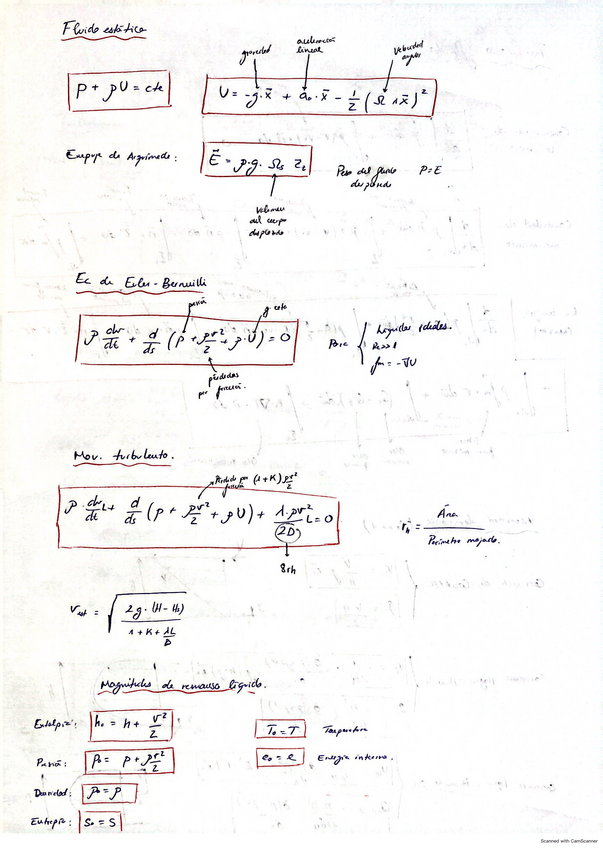 Fluidoestática
gravedad
aceleración
lineal
Velocidad
angular
p + ρU = cte
U = -g·x̄ + a₀·x̄ - 1/2 (Ω ∧ x̄)²
Empuje de Arquímedes:
Ē = ρ·g·Ωs z₂
Peso del fluido
desplazado
P=E
Volumen
del cuerpo
desplazado
Ec de Euler-Bernuilli
presión
g cste
ρ dv/dt + d/ds (p + ρv²/2 + ρ·U) = 0
Para { Líquidos ideales.
Re>>1
fm = -∇U
pérdidas
por fricción.
Mov. turbulento.
Pérdida por fricción (1+K) ρv²/2
ρ·dv/dt L + d/ds (p + ρv²/2 + ρU) + λ·ρv²/2D L = 0
8rh
rh = Área / Perímetro mojado.
Vest = √(2g·(H-H₀) / (1+K+λL/D))
Magnitudes de remanso líquido.
Entalpía: h₀ = h + v²/2
T₀ = T Temperatura
Presión: p₀ = p + ρv²/2
e₀ = e Energía interna.
Densidad: ρ₀ = ρ
Entropía: S₀ = S
Scanned with CamScanner